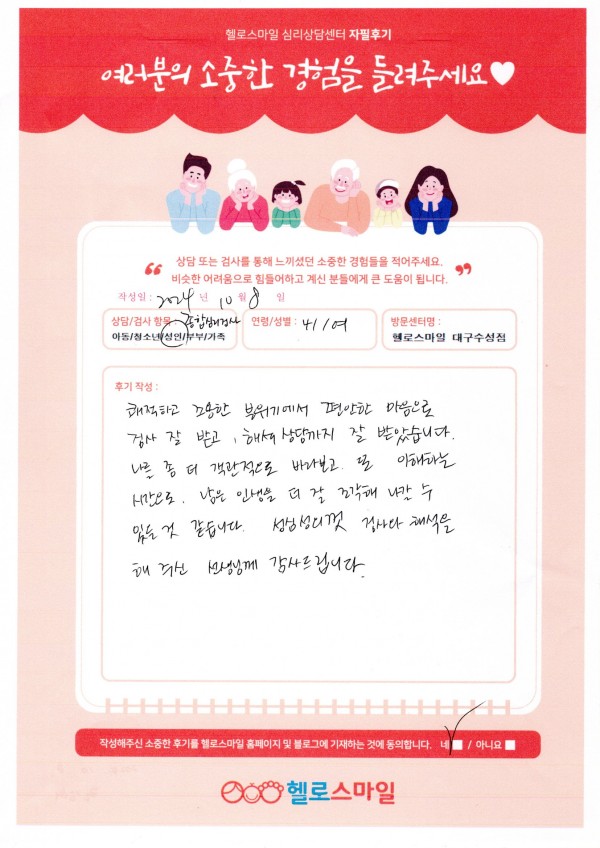 헬로스마일 심리상담센터 자필후기
여러분의 소중한 경험을 들려주세요♥
상담 또는 검사를 통해 느끼셨던 소중한 경험들을 적어주세요.
“ 비슷한 어려움으로 힘들어하고 계신 분들에게 큰 도움이 됩니다. ”
작성일 : 2024 년 10 월 8 일
상담/검사 항목 : 종합심리검사
아동/청소년/성인/부부/가족
연령/성별 : 41/여
방문센터명 :
헬로스마일 대구수성점
후기 작성 :
쾌적하고 조용한 분위기에서 편안한 마음으로
검사 잘 받고, 해석상담까지 잘 받았습니다.
나를 좀 더 객관적으로 바라보고 또 이해하는
시간으로. 남은 인생을 더 잘 조각해 나갈 수
있는 것 같습니다. 성심성의껏 검사와 해석을
해 주신 선생님께 감사드립니다.
작성해주신 소중한 후기를 헬로스마일 홈페이지 및 블로그에 기재하는 것에 동의합니다. 네 / 아니요
헬로스마일